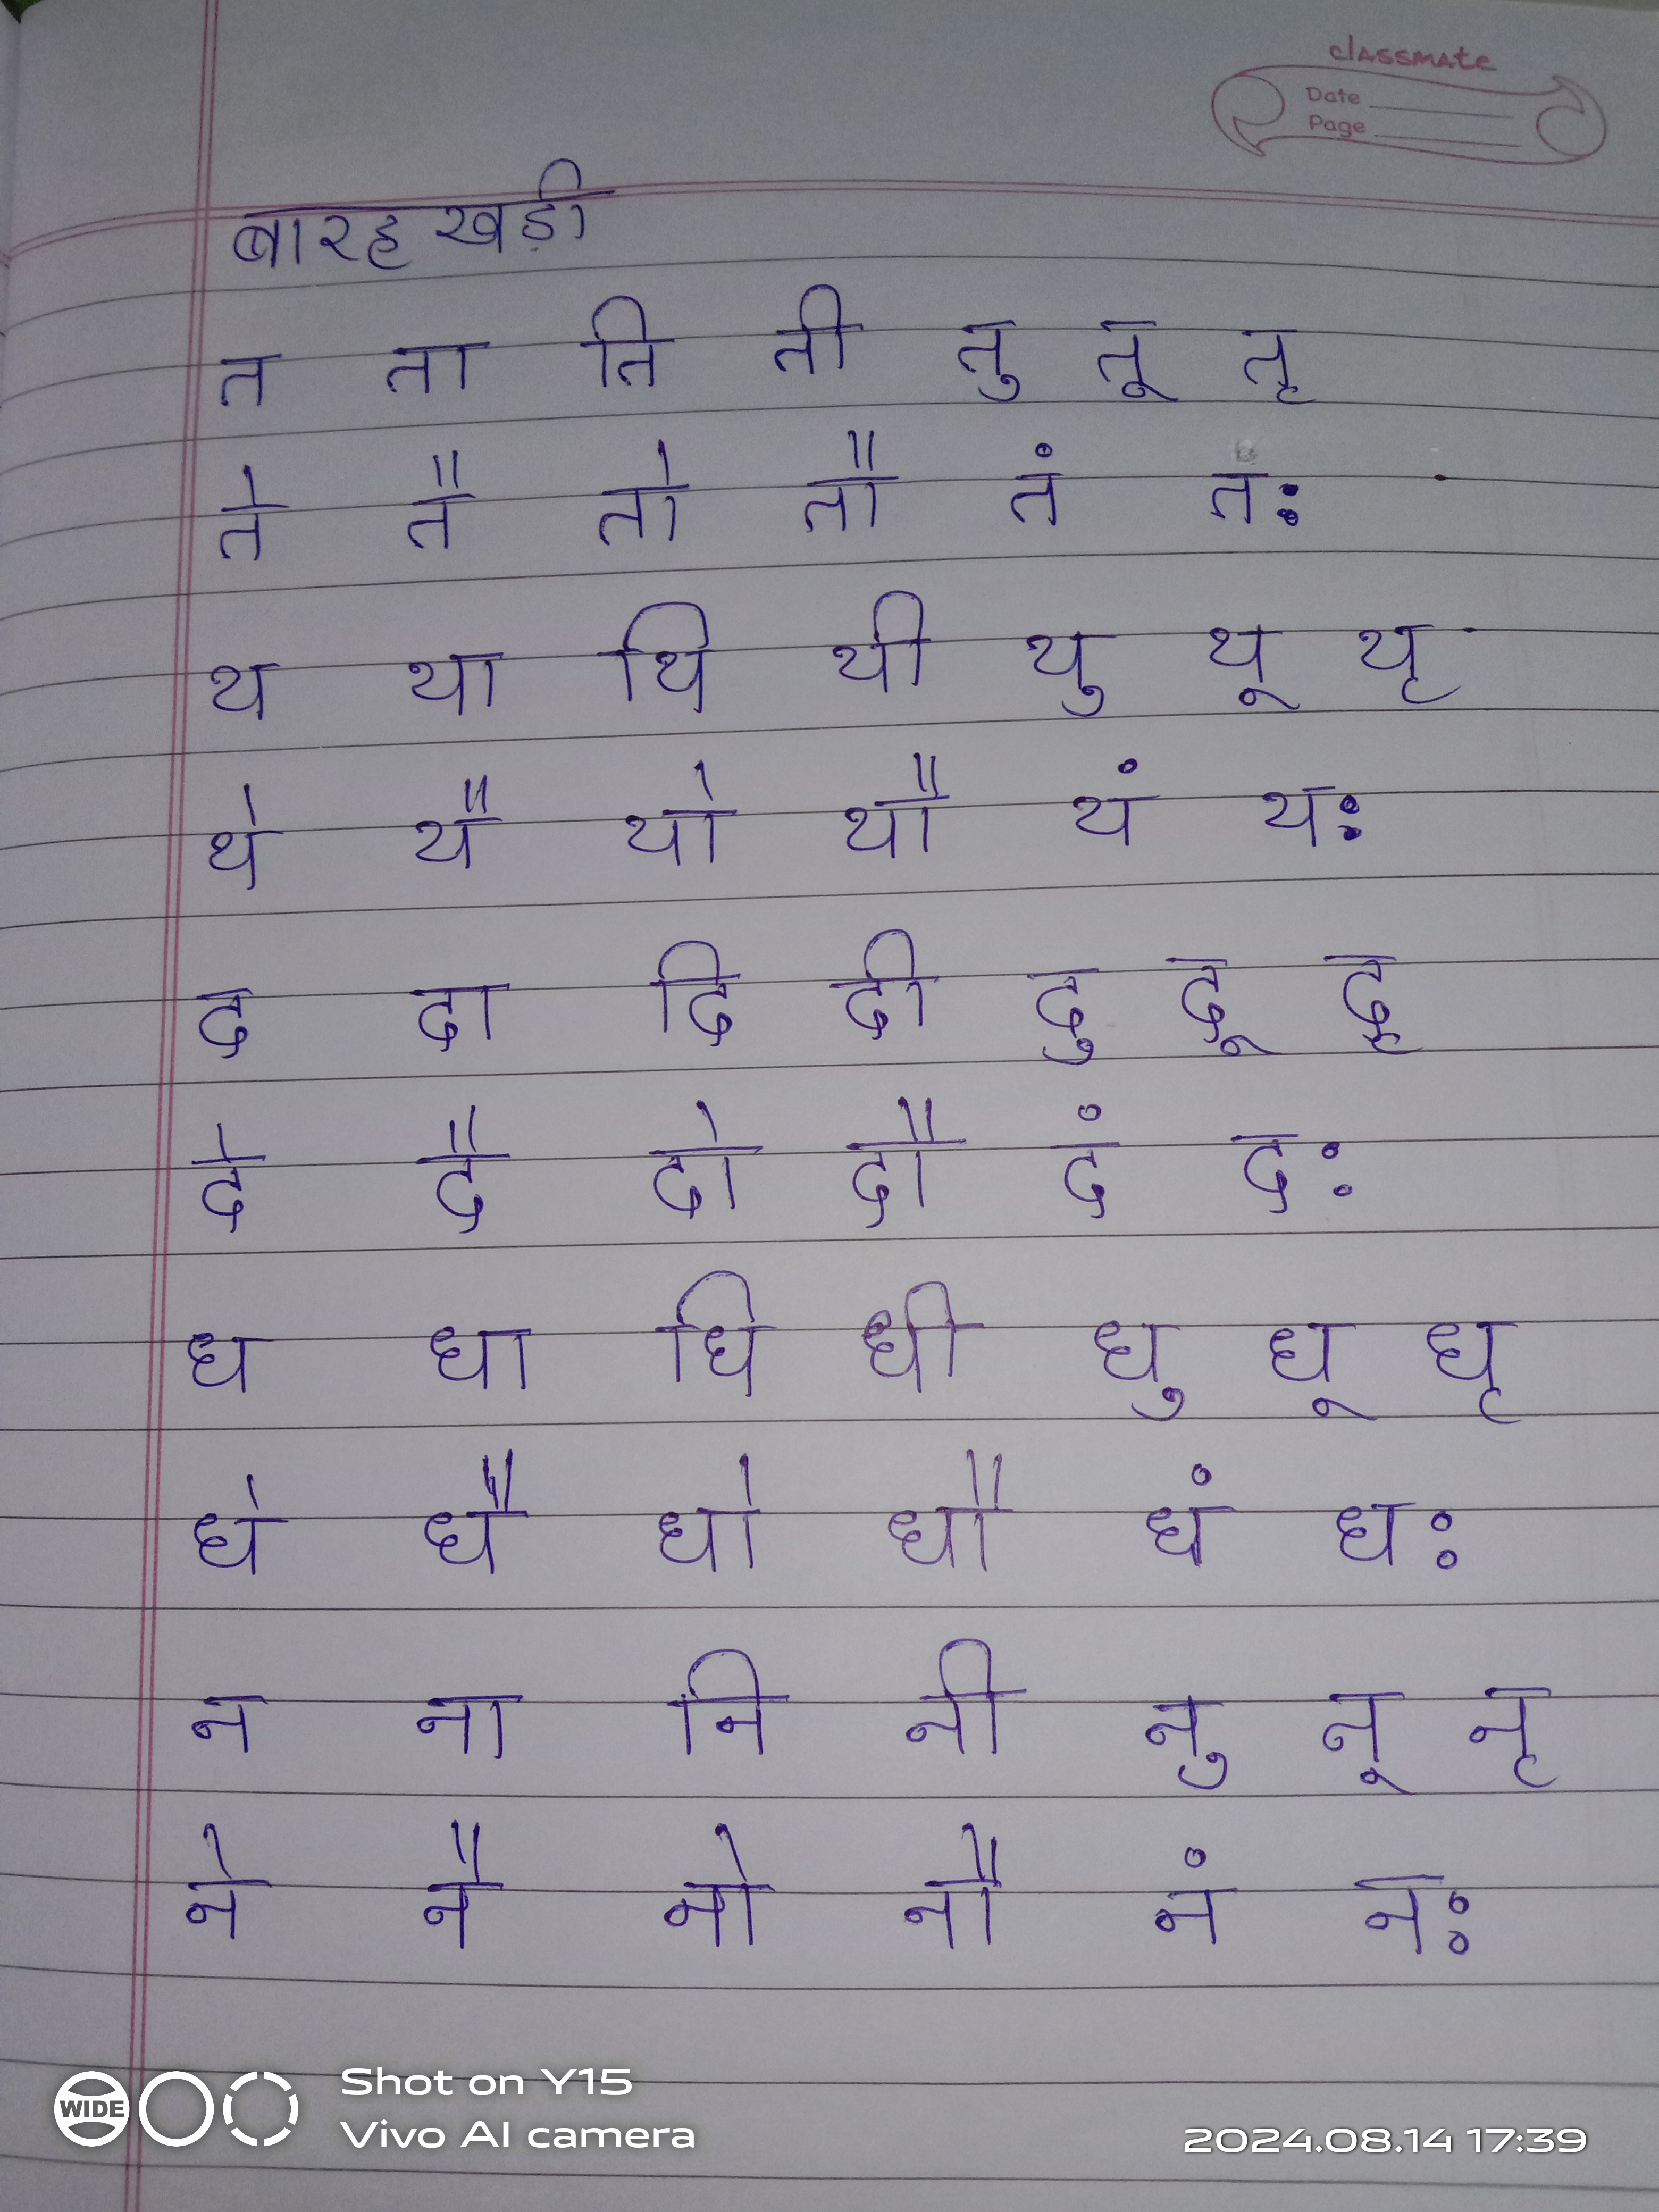 classmate
Date
Page
बारह खड़ी
त ता ति ती तु तू तृ
ते तै तो तौ तं तः
थ था थि थी थु थू थृ
थे थै थो थौ थं थः
द दा दि दी दु दू दृ
दे दै दो दौ दं दः
ध धा धि धी धु धू धृ
धे धै धो धौ धं धः
न ना नि नी नु नू नृ
ने नै नो नौ नं नः
WIDE
Shot on Y15
Vivo AI camera
2024.08.14 17:39